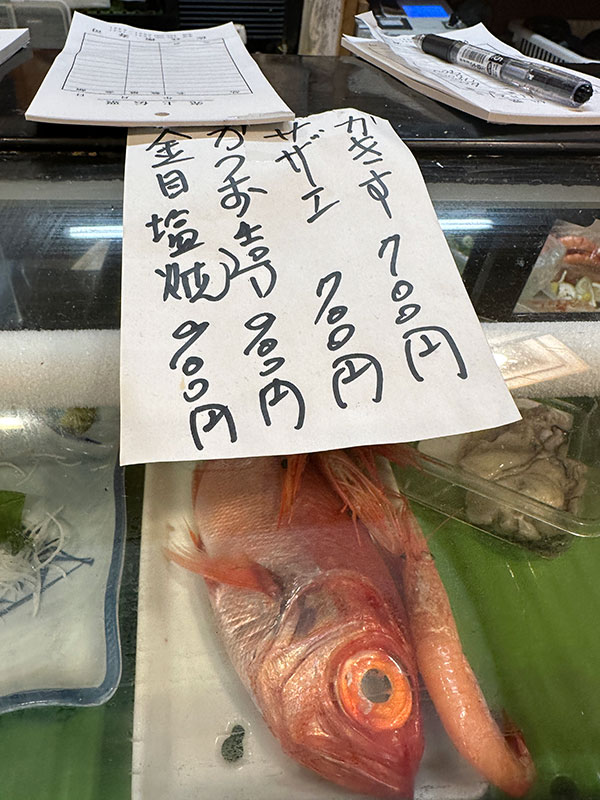 かきす 700円
サザエ 700円
かつお 900円
金目塩焼 900円